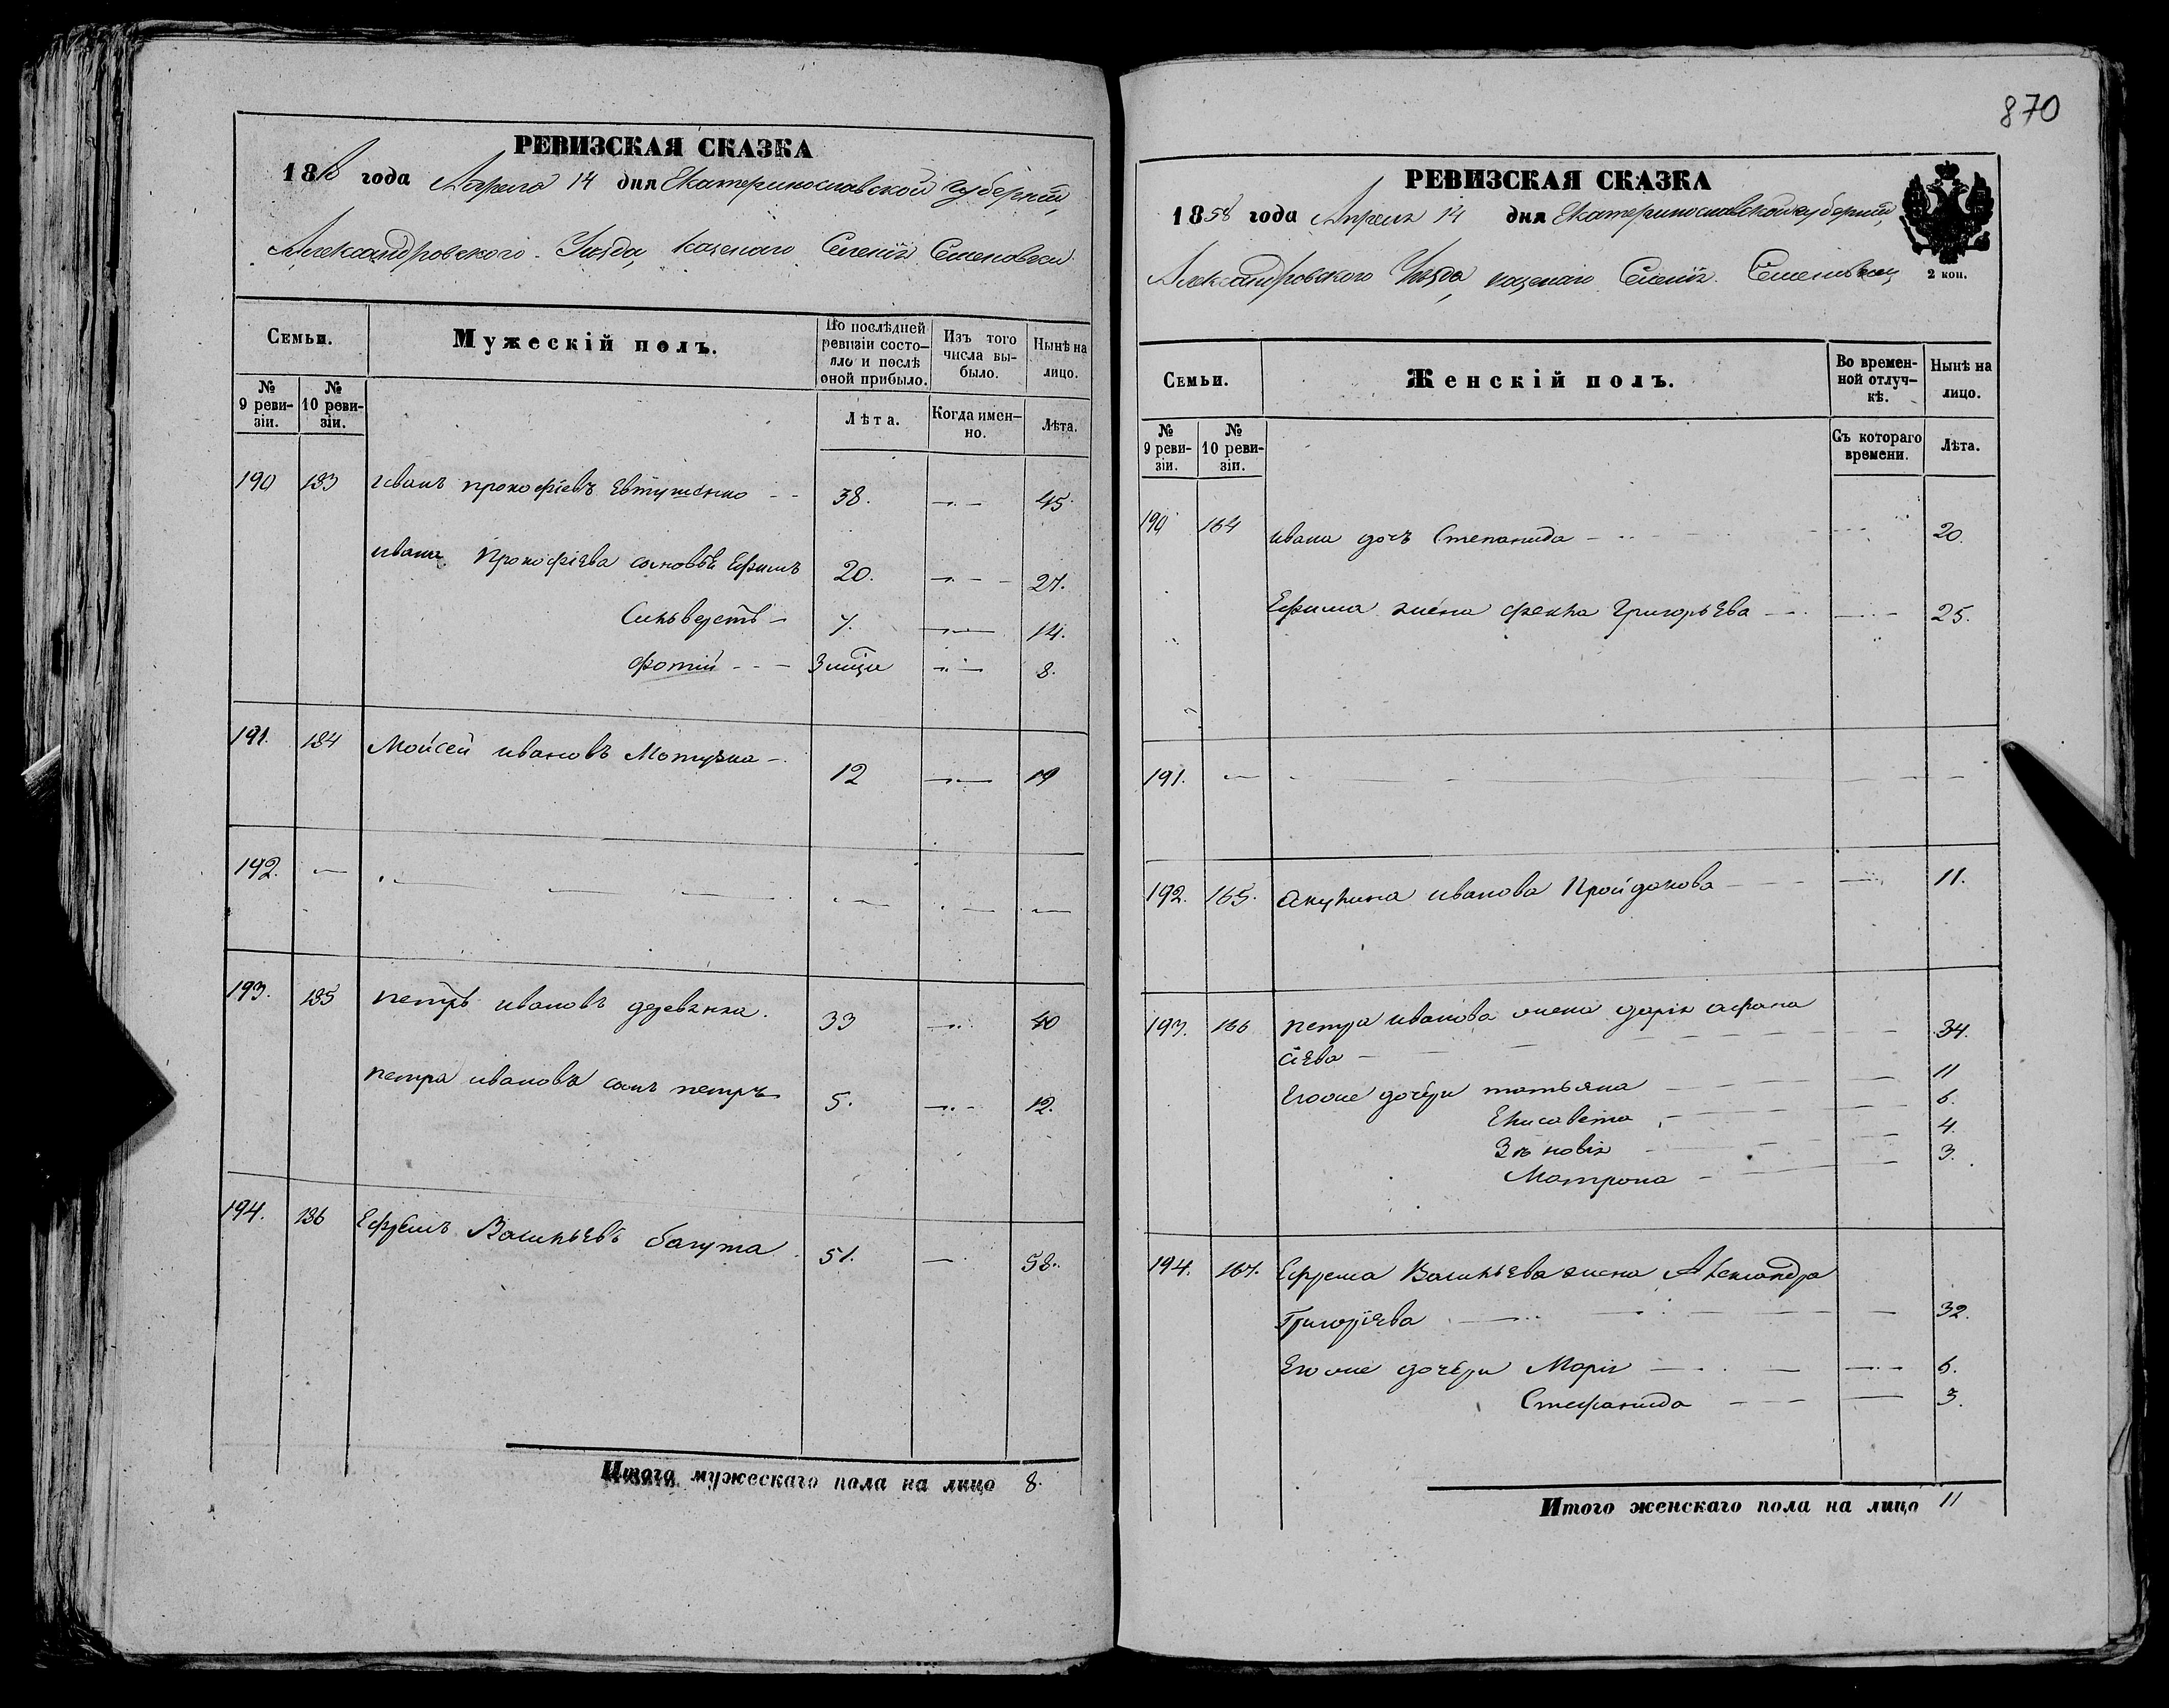 870
РЕВИЗСКАЯ СКАЗКА
1858 года Апреля 14 дня Екатеринославской губерніи,
Александровского Уѣзда, казенаго Селенія Семеновки
Семьи.
Мужескій полъ.
По послѣдней ревизіи состояло и послѣ оной прибыло.
Изъ того числа выбыло.
Нынѣ на лицо.
№ 9 ревизіи.
№ 10 ревизіи.
Лѣта.
Когда именно.
Лѣта.
190 183 иванъ прокофіевъ Евтушенко 38. 45.
ивана Прокофіева сыновья Ефимъ 20. 27.
Сильверстъ 7. 14.
фотій 3 мца 8.
191. 184 Мойсей ивановъ Мотузка 12 19
192.
193. 185 петръ ивановъ деревянка. 33 40
петра иванова сынъ петръ 5. 12.
194. 186 Ефремъ Васильевъ багута 51. 58.
Итого мужескаго пола на лицо 8.
РЕВИЗСКАЯ СКАЗКА
1858 года Апреля 14 дня Екатеринославской губерніи,
Александровского Уѣзда, казенаго Селенія Семеновки
2 коп.
Семьи.
Женскій полъ.
Во временной отлучкѣ.
Нынѣ на лицо.
№ 9 ревизіи.
№ 10 ревизіи.
Съ котораго времени.
Лѣта.
190 164 ивана дочь Степанида 20.
Ефима жена фекла Григорьева 25.
191.
192. 165. акулина иванова Пройдакова 11.
193. 166 петра иванова жена дарія афана
сіева 34.
Егоже дочери татьяна 11
Елисавета 6.
Зѣновія 4.
Матрона 3.
194. 167. Ефрема Васильева жена Александра
Григоріева 32.
Егоже дочери Марія 6.
Стефанида 3.
Итого женскаго пола на лицо 11